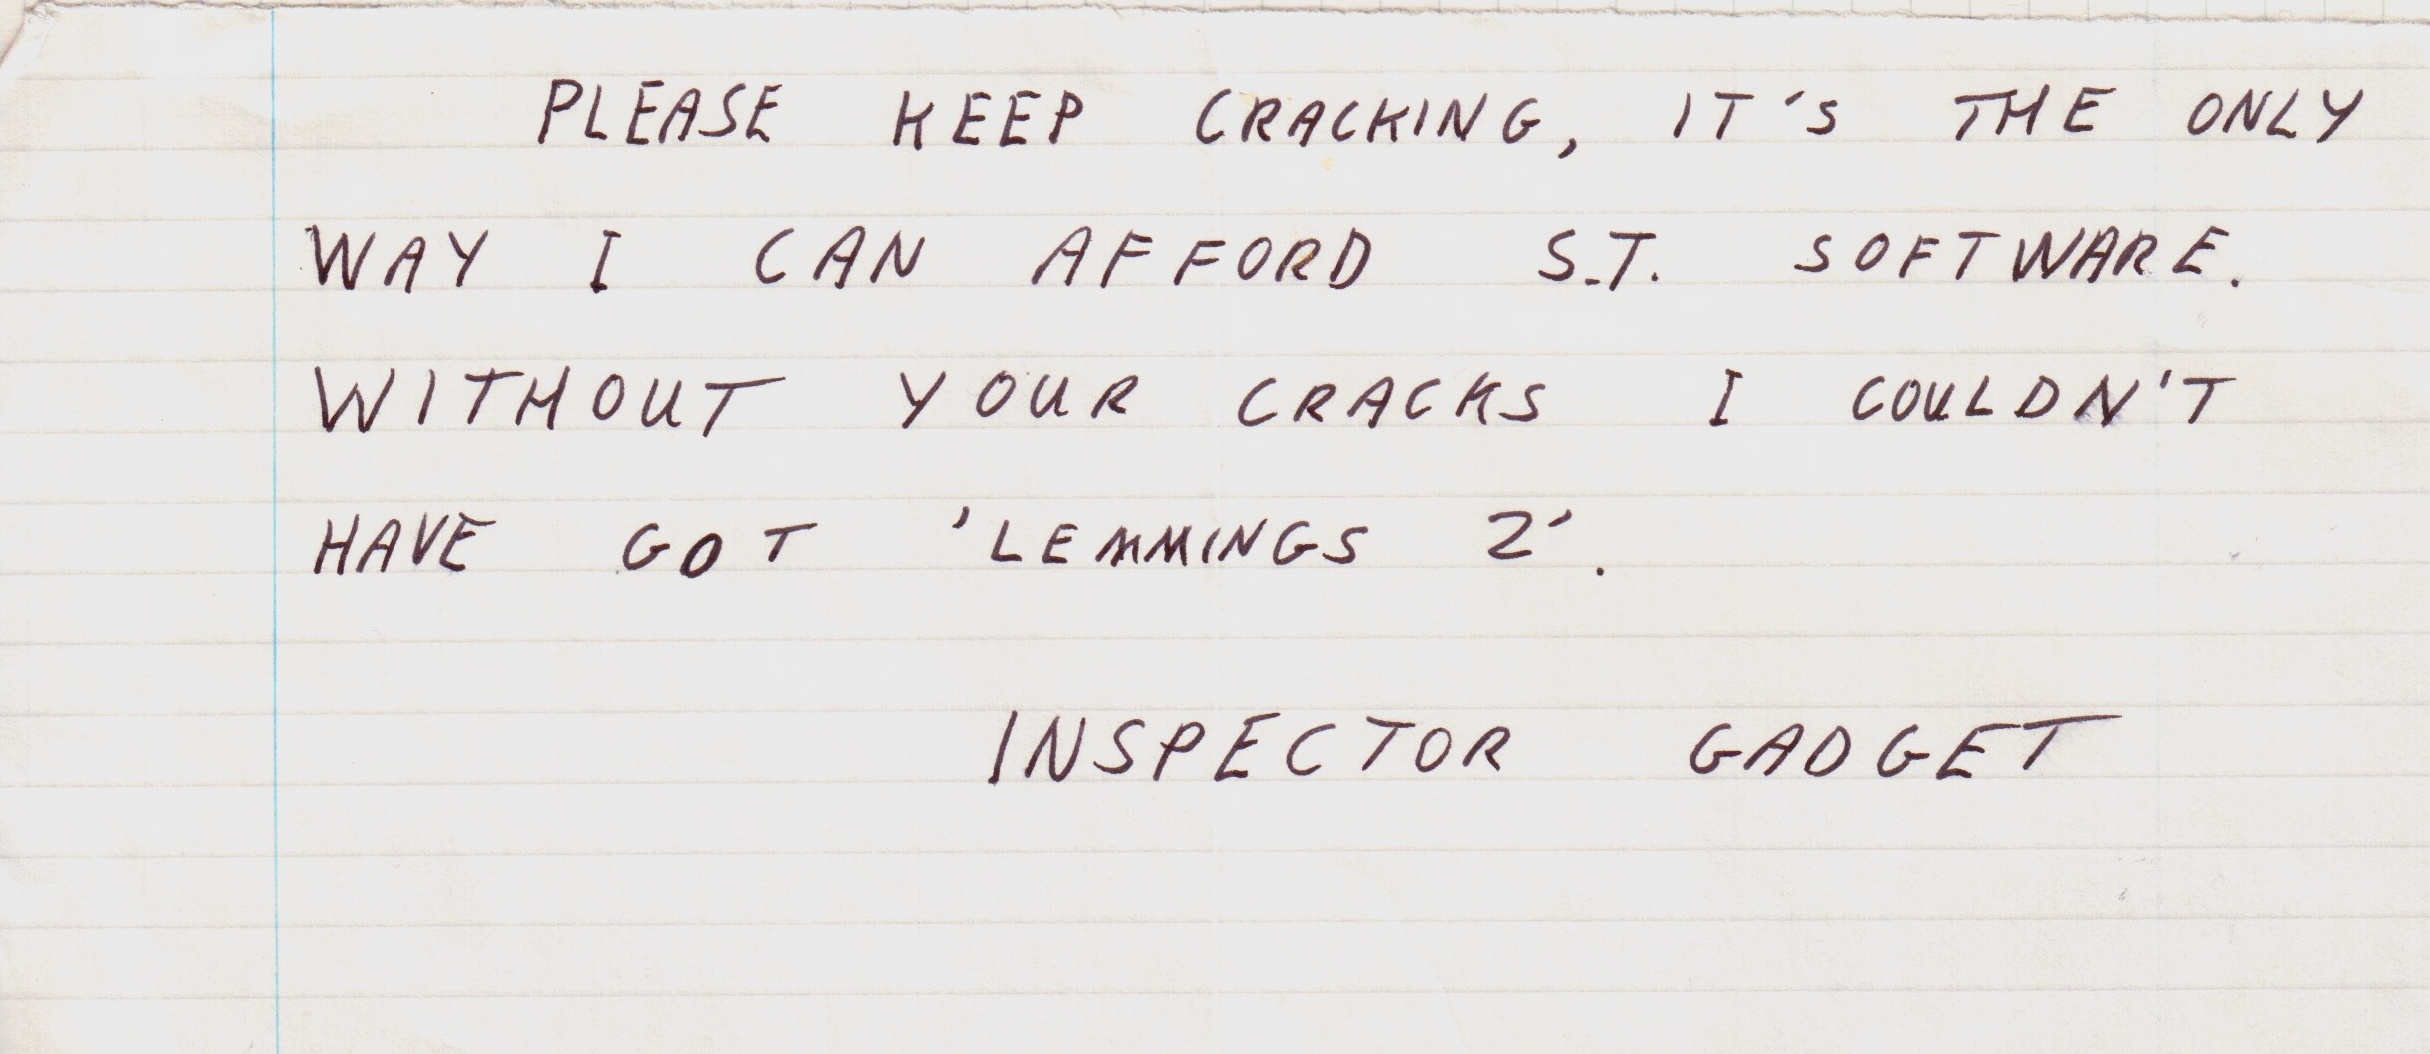 PLEASE KEEP CRACKING, IT'S THE ONLY
WAY I CAN AFFORD S.T. SOFTWARE.
WITHOUT YOUR CRACKS I COULDN'T
HAVE GOT 'LEMMINGS 2'.
INSPECTOR GADGET